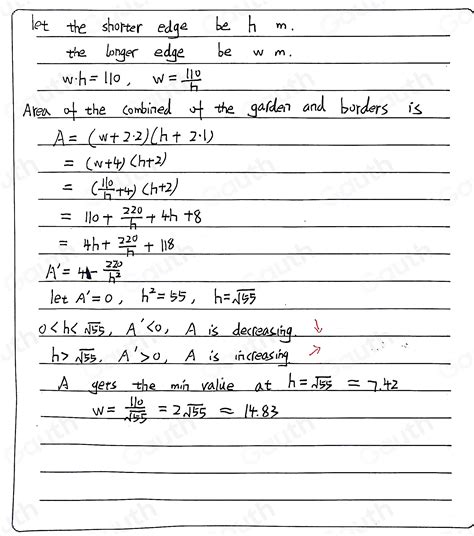 let the shorter edge be h m.
the longer edge be w m.
w·h=110, w=110/h
Area of the combined of the garden and borders is
A=(w+2·2)(h+2·1)
=(w+4)(h+2)
=(110/h+4)(h+2)
=110+220/h+4h+8
=4h+220/h+118
A'=4-220/h²
let A'=0, h²=55, h=√55
0<h<√55, A'<0, A is decreasing. ↓
h>√55, A'>0, A is increasing ↗
A gets the min value at h=√55 ≈7.42
w=110/√55=2√55≈14.83